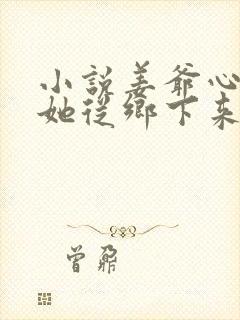 小說姜爺心
她從鄉下來
曾鼐